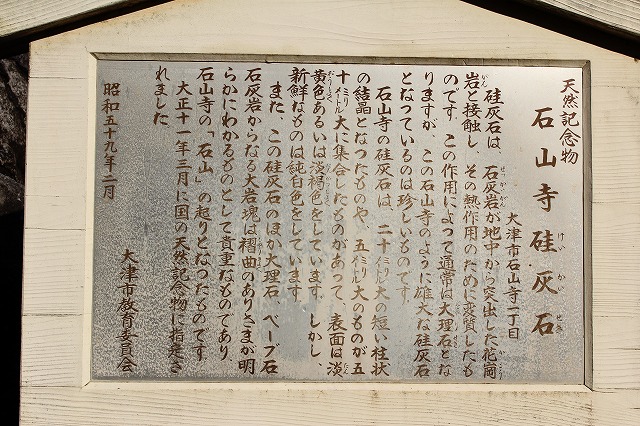 天然記念物
石山寺硅灰石
けいかいせき
大津市石山寺一丁目
硅灰石は、石灰岩が地中から突出した花崗
せっかいがん
かこう
岩と接触し、その熱作用のために変質したも
がん
のです。この作用によって通常は大理石とな
りますが、この石山寺のように雄大な硅灰石
となっているのは珍しいものです。
石山寺の硅灰石は、二十ミリ大の短い柱状
の結晶となったものや、五ミリ大のものが五
十ミリメートル大に集合したものがあって、表面は淡
黄色あるいは淡褐色をしています。しかし、
新鮮なものは純白色をしています。
また、この硅灰石のほか大理石、ベーブ石
石灰岩からなる大岩塊は褶曲のありさまが明
らかにわかるものとして貴重なものであり
石山寺の「石山」の起りとなったものです。
大正十一年三月に国の天然記念物に指定さ
れました。
昭和五十九年二月
大津市教育委員会